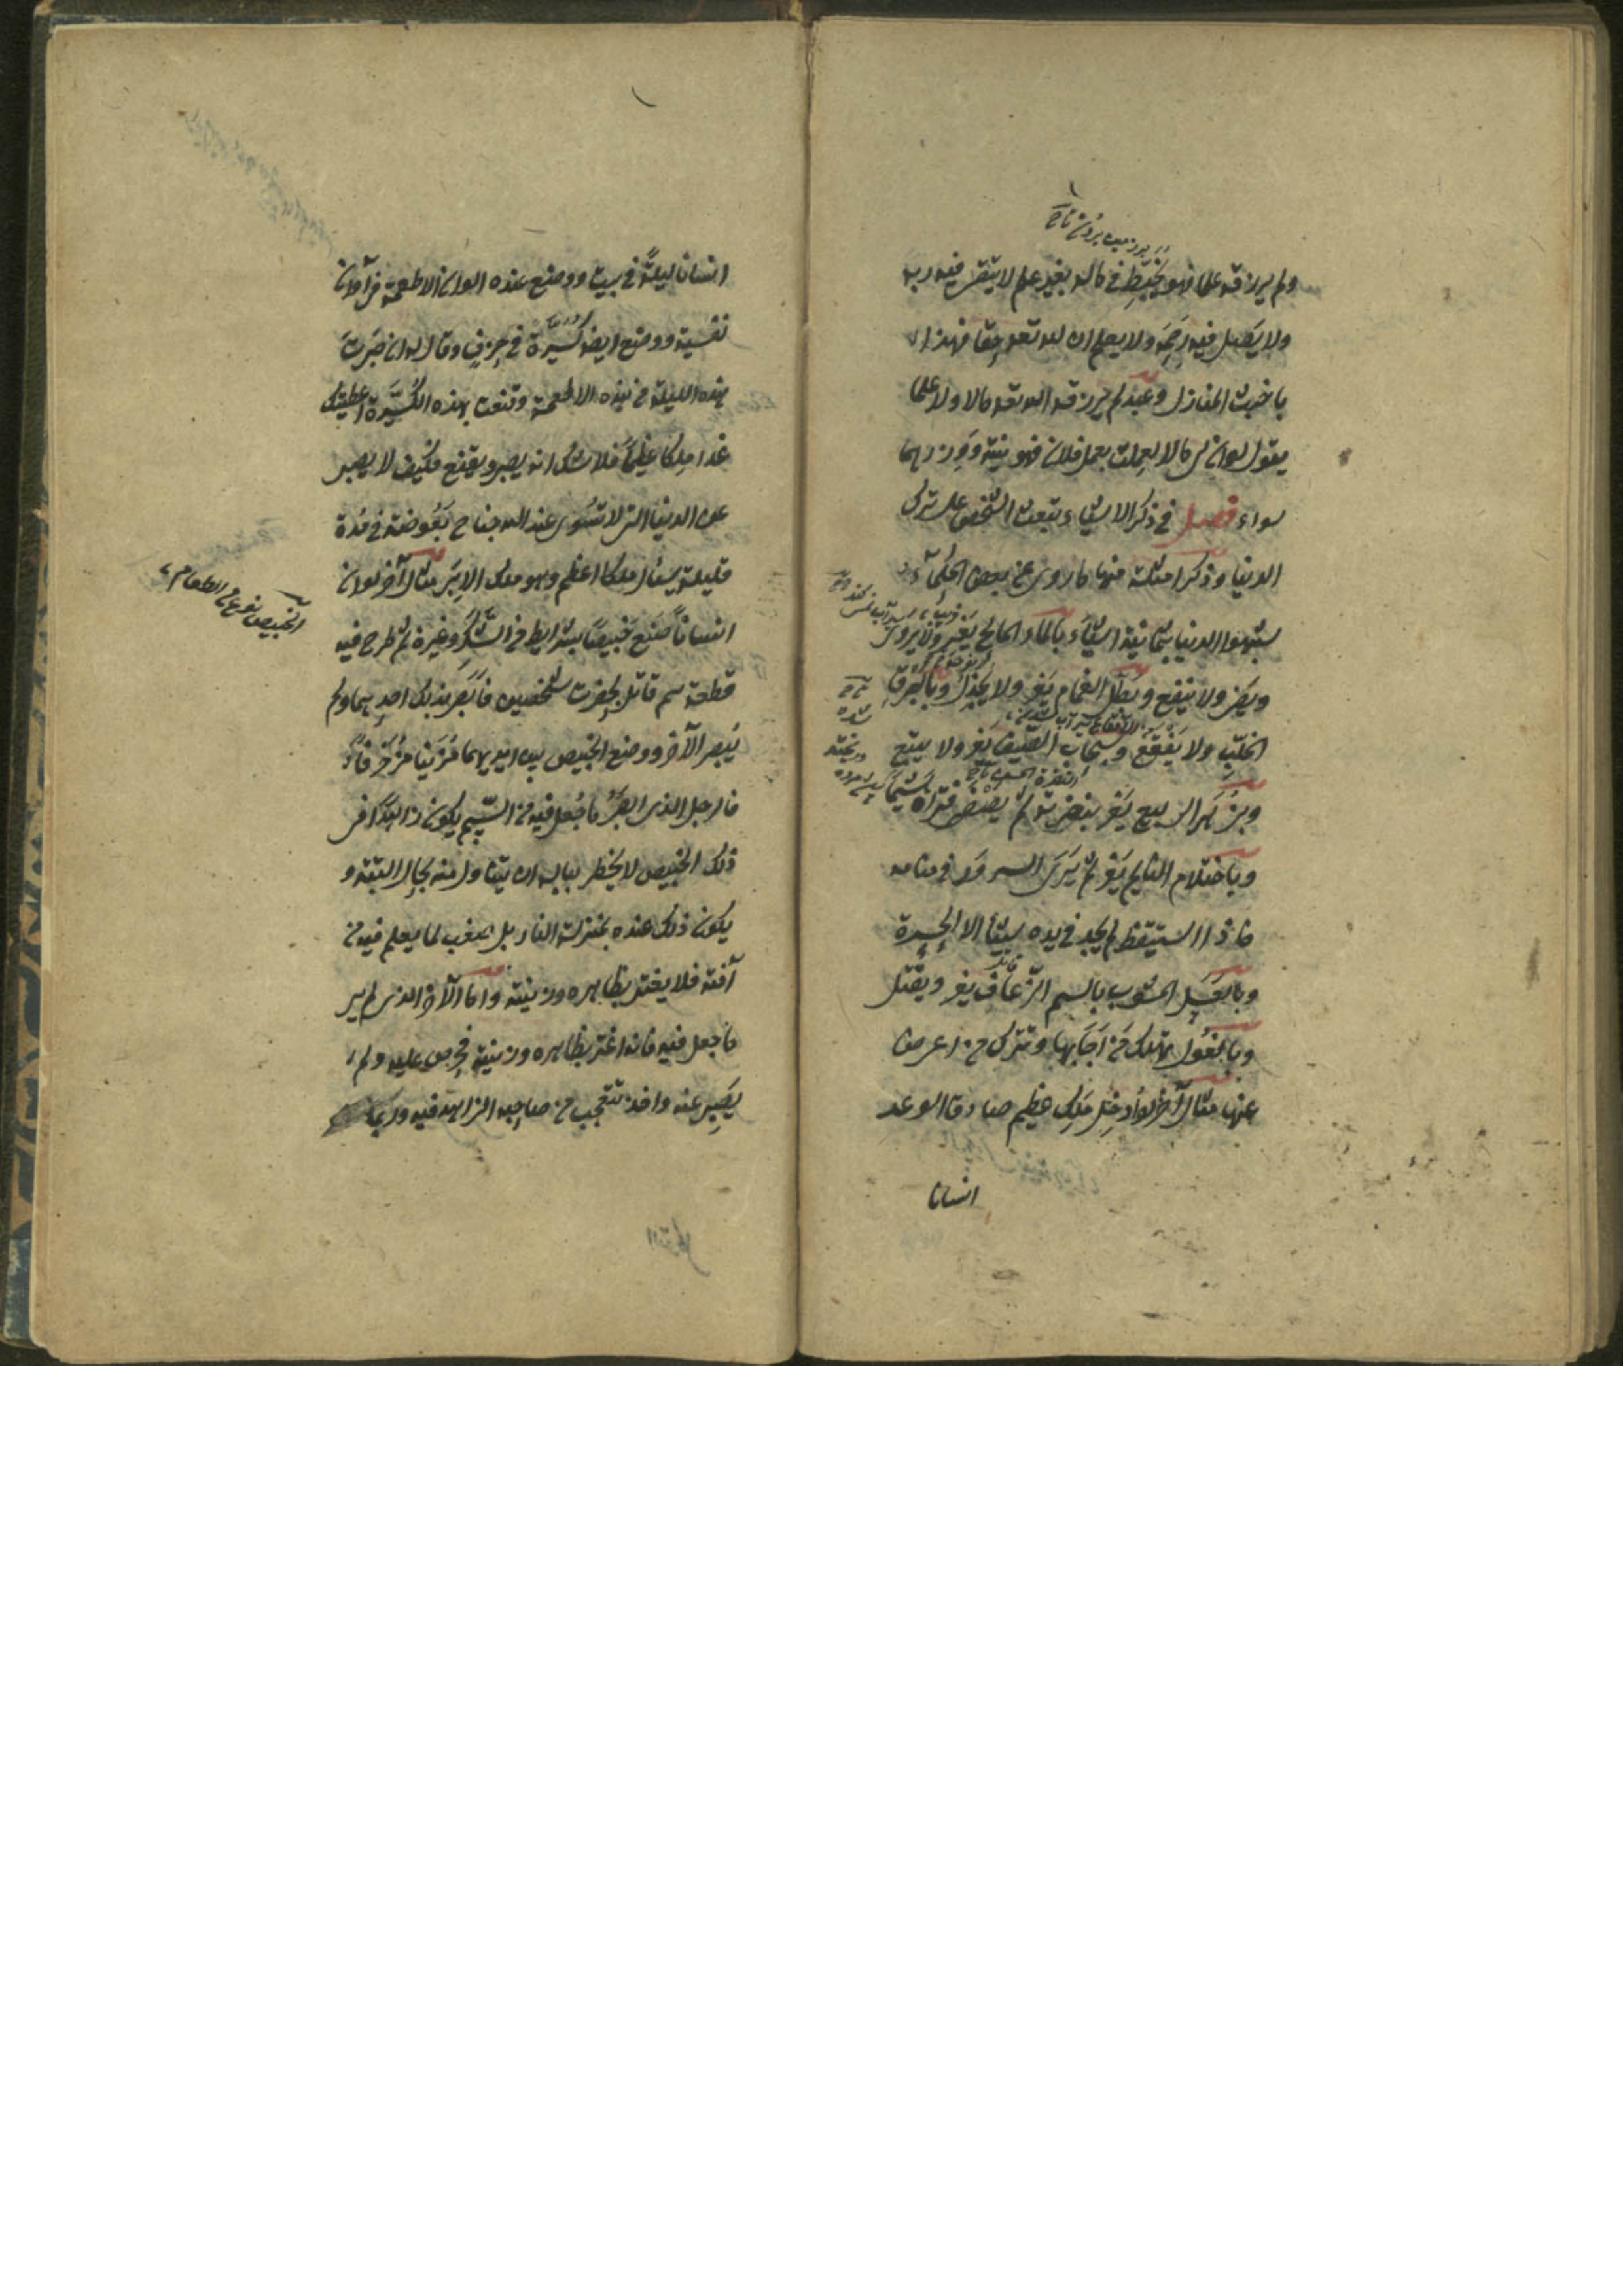 ولم يرزقه علما فهو يخبط في ماله بغير علم لا يتقى فيه ربه
ولا يصل فيه رحمه ولا يعلم ان لله تعه حقا فهذا
باخبث المنازل وعبد لم يرزقه الله تعه مالا ولا علما
يقول لو ان لى مالا لعملت بعمل فلان فهو بنيته ووزرهما
سواء فصل في ذكر الاشياء تبعث الشخص على ترك
الدنيا وذكر امثلة منها ما روى عن بعض الحكماء
شبهوا الدنيا بثمانية اشياء بالماء المالح يغر ولا يروى
ويضر ولا ينفع وبظل الغمام يغر ولا يخذل وبالبرق
الخلب ولا ينفع وبسحاب الصيف يغر ولا ينفع
وبزهر الربيع يغر بنضرته ثم يصفر فتراه هشيما
وباحتلام النائم يغر ثم يرى السرور في منامه
فاذا استيقظ لم يجد في يده شيئا الا الحسرة
وبالعسل المشوب بالسم الزعاف يغر ويقتل
وبالغول تهلك من اجابها وتترك من اعرض
عنها مثال آخر لو ادخل ملك عظيم صادق الوعد
انسانا
انسانا ليلة في بيت ووضع عنده الوان الاطعمة في آوان
نفيسة ووضع ايضا كسيرة في خزف وقال له ان صبرت
بهذه الليلة من هذه الاطعمة وقنعت بهذه الكسيرة اعطيتك
غدا ملكا عظيما فلا شك انه يصبر ويقنع فكيف لا يصبر
عن الدنيا التى لا تسوى عند الله جناح بعوضة في مدة
قليلة ينال ملكا اعظم وهو ملك الابد مثال آخر لو ان
انسانا صنع خبيصا بشرايط في السكر وغيره ثم طرح فيه
قطعة سم قاتل بحضرت شخصين فابصر بذلك احدهما ولم
يبصر الآخر ووضع الخبيص بين ايديهما مزينا مزخرفا
فالرجل الذى ابصر ما جعل فيه من السم يكون زاهدا في
ذلك الخبيص لا يخطر بباله ان يتناول منه بحال البتة و
يكون ذلك عنده بمنزلة النار بل اصعب لما يعلم فيه من
آفته فلا يغتر بظاهره وزينته واما الآخر الذى لم ير
ما جعل فيه فانه اغتر بظاهره وزينته فحرص عليه ولم
يصبر عنه واخذ يتعجب من صاحبه الزاهد فيه وربما
الخبيص نوع من الطعام